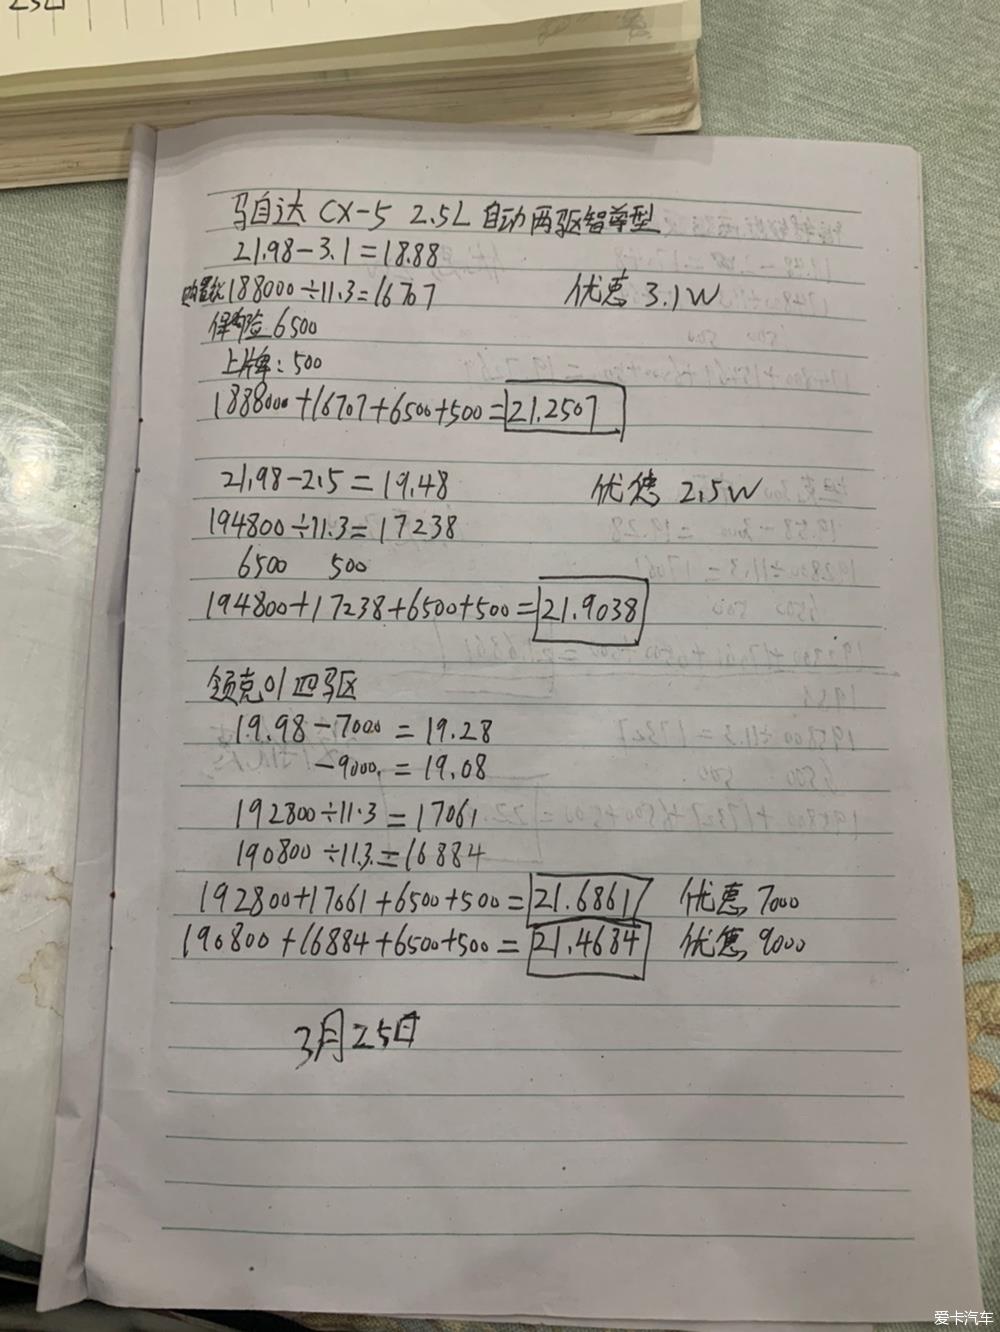 马自达 CX-5 2.5L 自动两驱智尊型
21.98-3.1=18.88
购置税188000÷11.3=16707 优惠 3.1W
保险6500
上牌:500
188800+16707+6500+500=21.2507
21.98-2.5=19.48 优惠 2.5W
194800÷11.3=17238
6500 500
194800+17238+6500+500=21.9038
领克01四驱
19.98-7000=19.28
-9000=19.08
192800÷11.3=17061
190800÷11.3=16884
192800+17061+6500+500=21.6861 优惠7000
190800+16884+6500+500=21.4684 优惠9000
3月25日
爱卡汽车